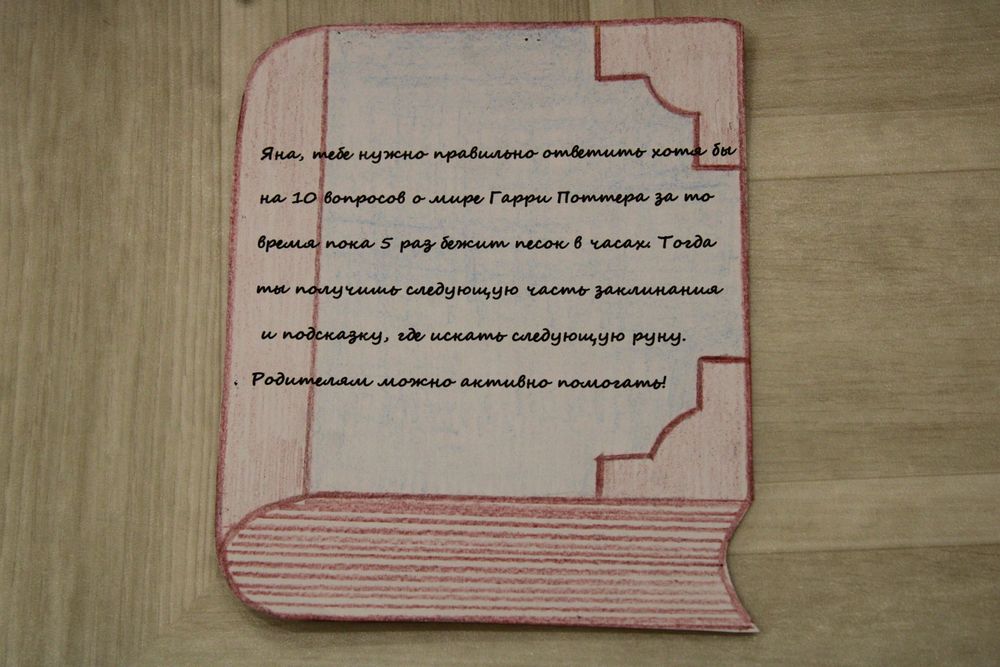 Яна, тебе нужно правильно ответить хотя бы
на 10 вопросов о мире Гарри Поттера за то
время пока 5 раз бежит песок в часах. Тогда
ты получишь следующую часть заклинания
и подсказку, где искать следующую руну.
Родителям можно активно помогать!